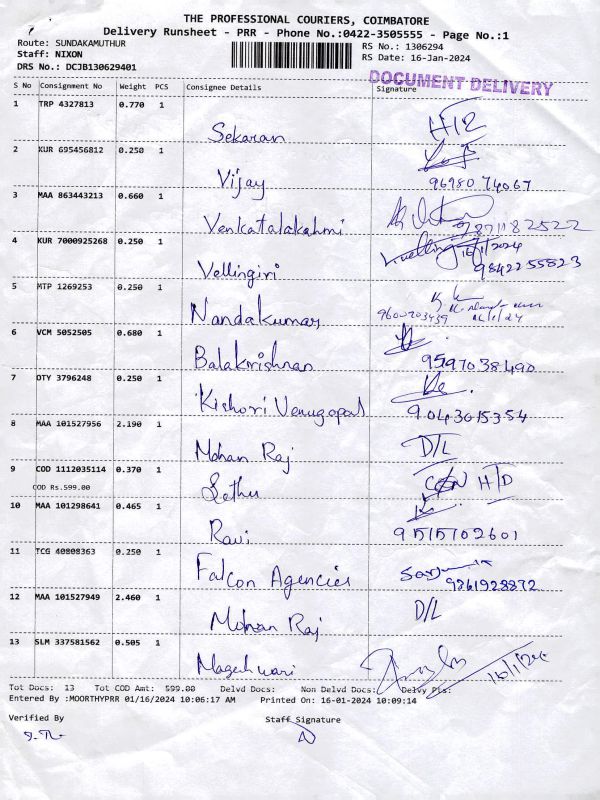 THE PROFESSIONAL COURIERS, COIMBATORE
Delivery Runsheet - PRR - Phone No.:0422-3505555 - Page No.:1
Route: SUNDAKAMUTHUR
RS No.: 1306294
Staff: NIXON
RS Date: 16-Jan-2024
DRS No.: DCJB130629401
DOCUMENT DELIVERY
S No Consignment No Weight PCS Consignee Details Signature
1 TRP 4327813 0.770 1
Sekaran
2 KUR 695456812 0.250 1
Vijay 96980 74067
3 MAA 863443213 0.660 1
Venkatalakshmi 978711182522
4 KUR 7000925268 0.250 1 16/1/2024
Vellingiri 9842255823
5 MTP 1269253 0.250 1
Nandakumar 9600703439 16/1/24
6 VCM 5052505 0.680 1
Balakrishnan 9597038490
7 OTY 3796248 0.250 1
Kishori Venugopal 9043015354
8 MAA 101527956 2.190 1
Mohan Raj D/L
9 COD 1112035114 0.370 1
COD Rs.599.00
Sethu H/D
10 MAA 101298641 0.465 1
Ravi 9515702601
11 TCG 40808363 0.250 1
Falcon Agencies 9261928872
12 MAA 101527949 2.460 1
Mohan Raj D/L
13 SLM 337581562 0.505 1
Mageshwari 16/1/24
Tot Docs: 13 Tot COD Amt: 599.00 Delvd Docs: Non Delvd Docs: Delvy Pts:
Entered By :MOORTHYPRR 01/16/2024 10:06:17 AM Printed On: 16-01-2024 10:09:14
Verified By Staff Signature